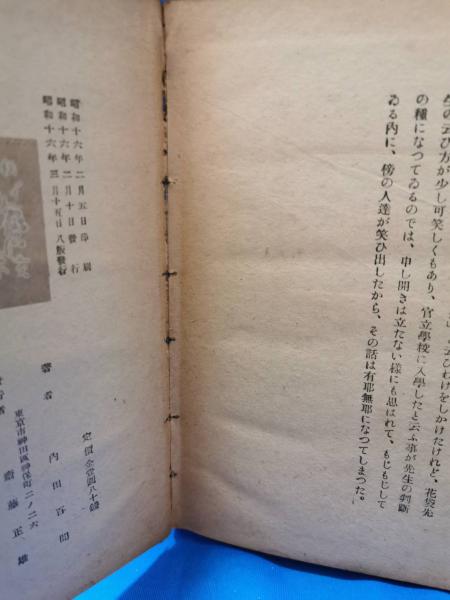 生の云ひ方が少し可笑しくもあり、官立學校に入學したと云ふ事が先生の判斷
の種になつてゐるのでは、申し開きは立たない樣にも思はれて、もじもじして
ゐる内に、傍の人達が笑ひ出したから、その話は有耶無耶になつてしまつた。
昭和十六年二月五日印刷
昭和十六年二月十日發行
昭和十六年三月十五日八版發行
定價金壹圓八十錢
著者 内田百間
東京市神田區神保町二ノ二六
齋藤正雄